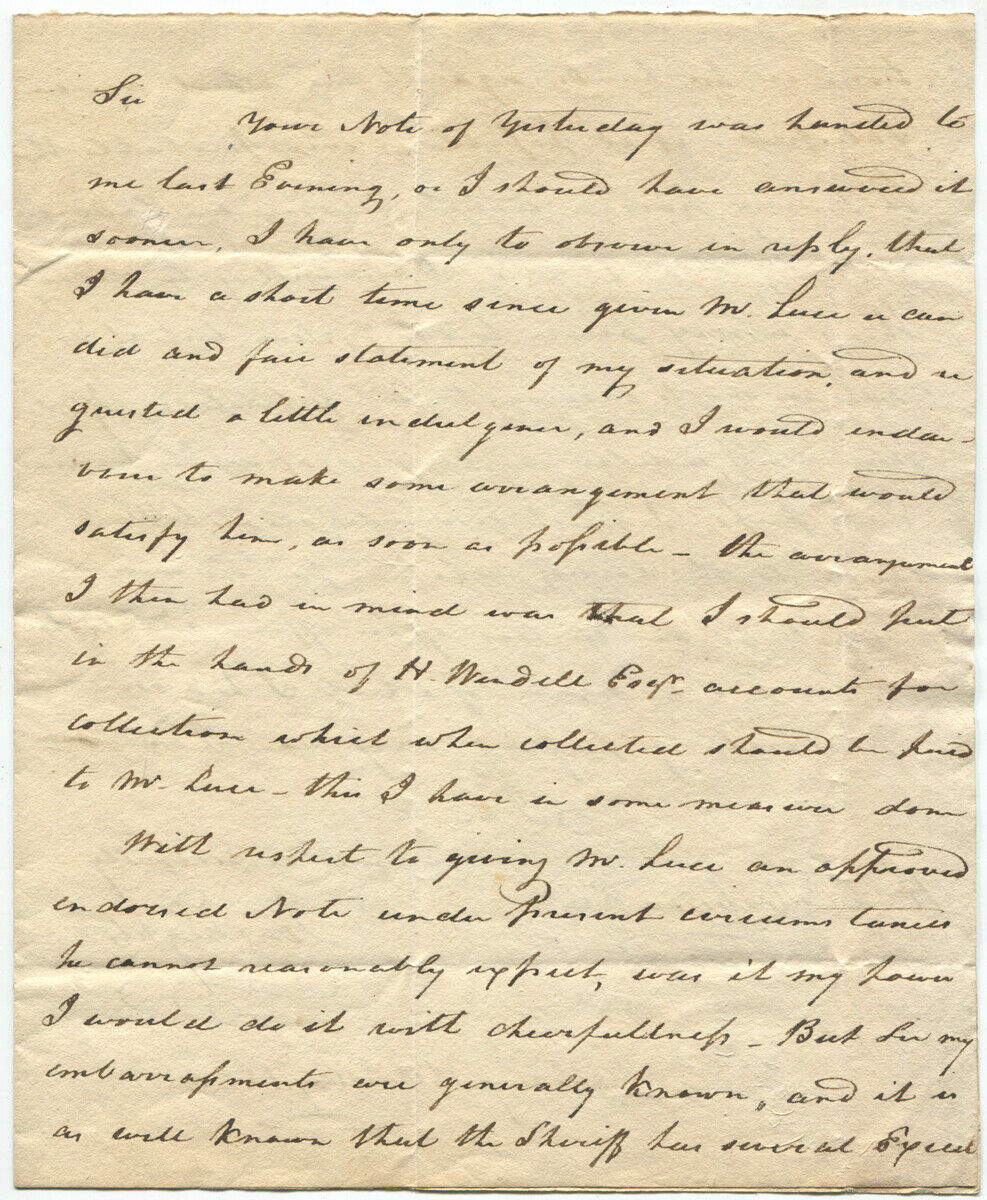 Sir
Your Note of Yesterday was handed to
me last Evening, or I should have answered it
sooner, I have only to observe in reply, that
I have a short time since given Mr. Luce a can
did and fair statement of my situation, and re
quested a little indulgence, and I would endea-
vour to make some arrangement that would
satisfy him, as soon as possible - the arrangement
I then had in mind was that I should put
in the hands of H. Wendell Esqr. accounts for
collection which when collected should be paid
to Mr. Luce - this I have in some measure done
With respect to giving Mr. Luce an approved
endorsed Note under Present circumstances
he cannot reasonably expect, was it my power
I would do it with cheerfullness - But Sir my
embarrassments are generally known, and it is
as well known that the Sheriff has several Execu